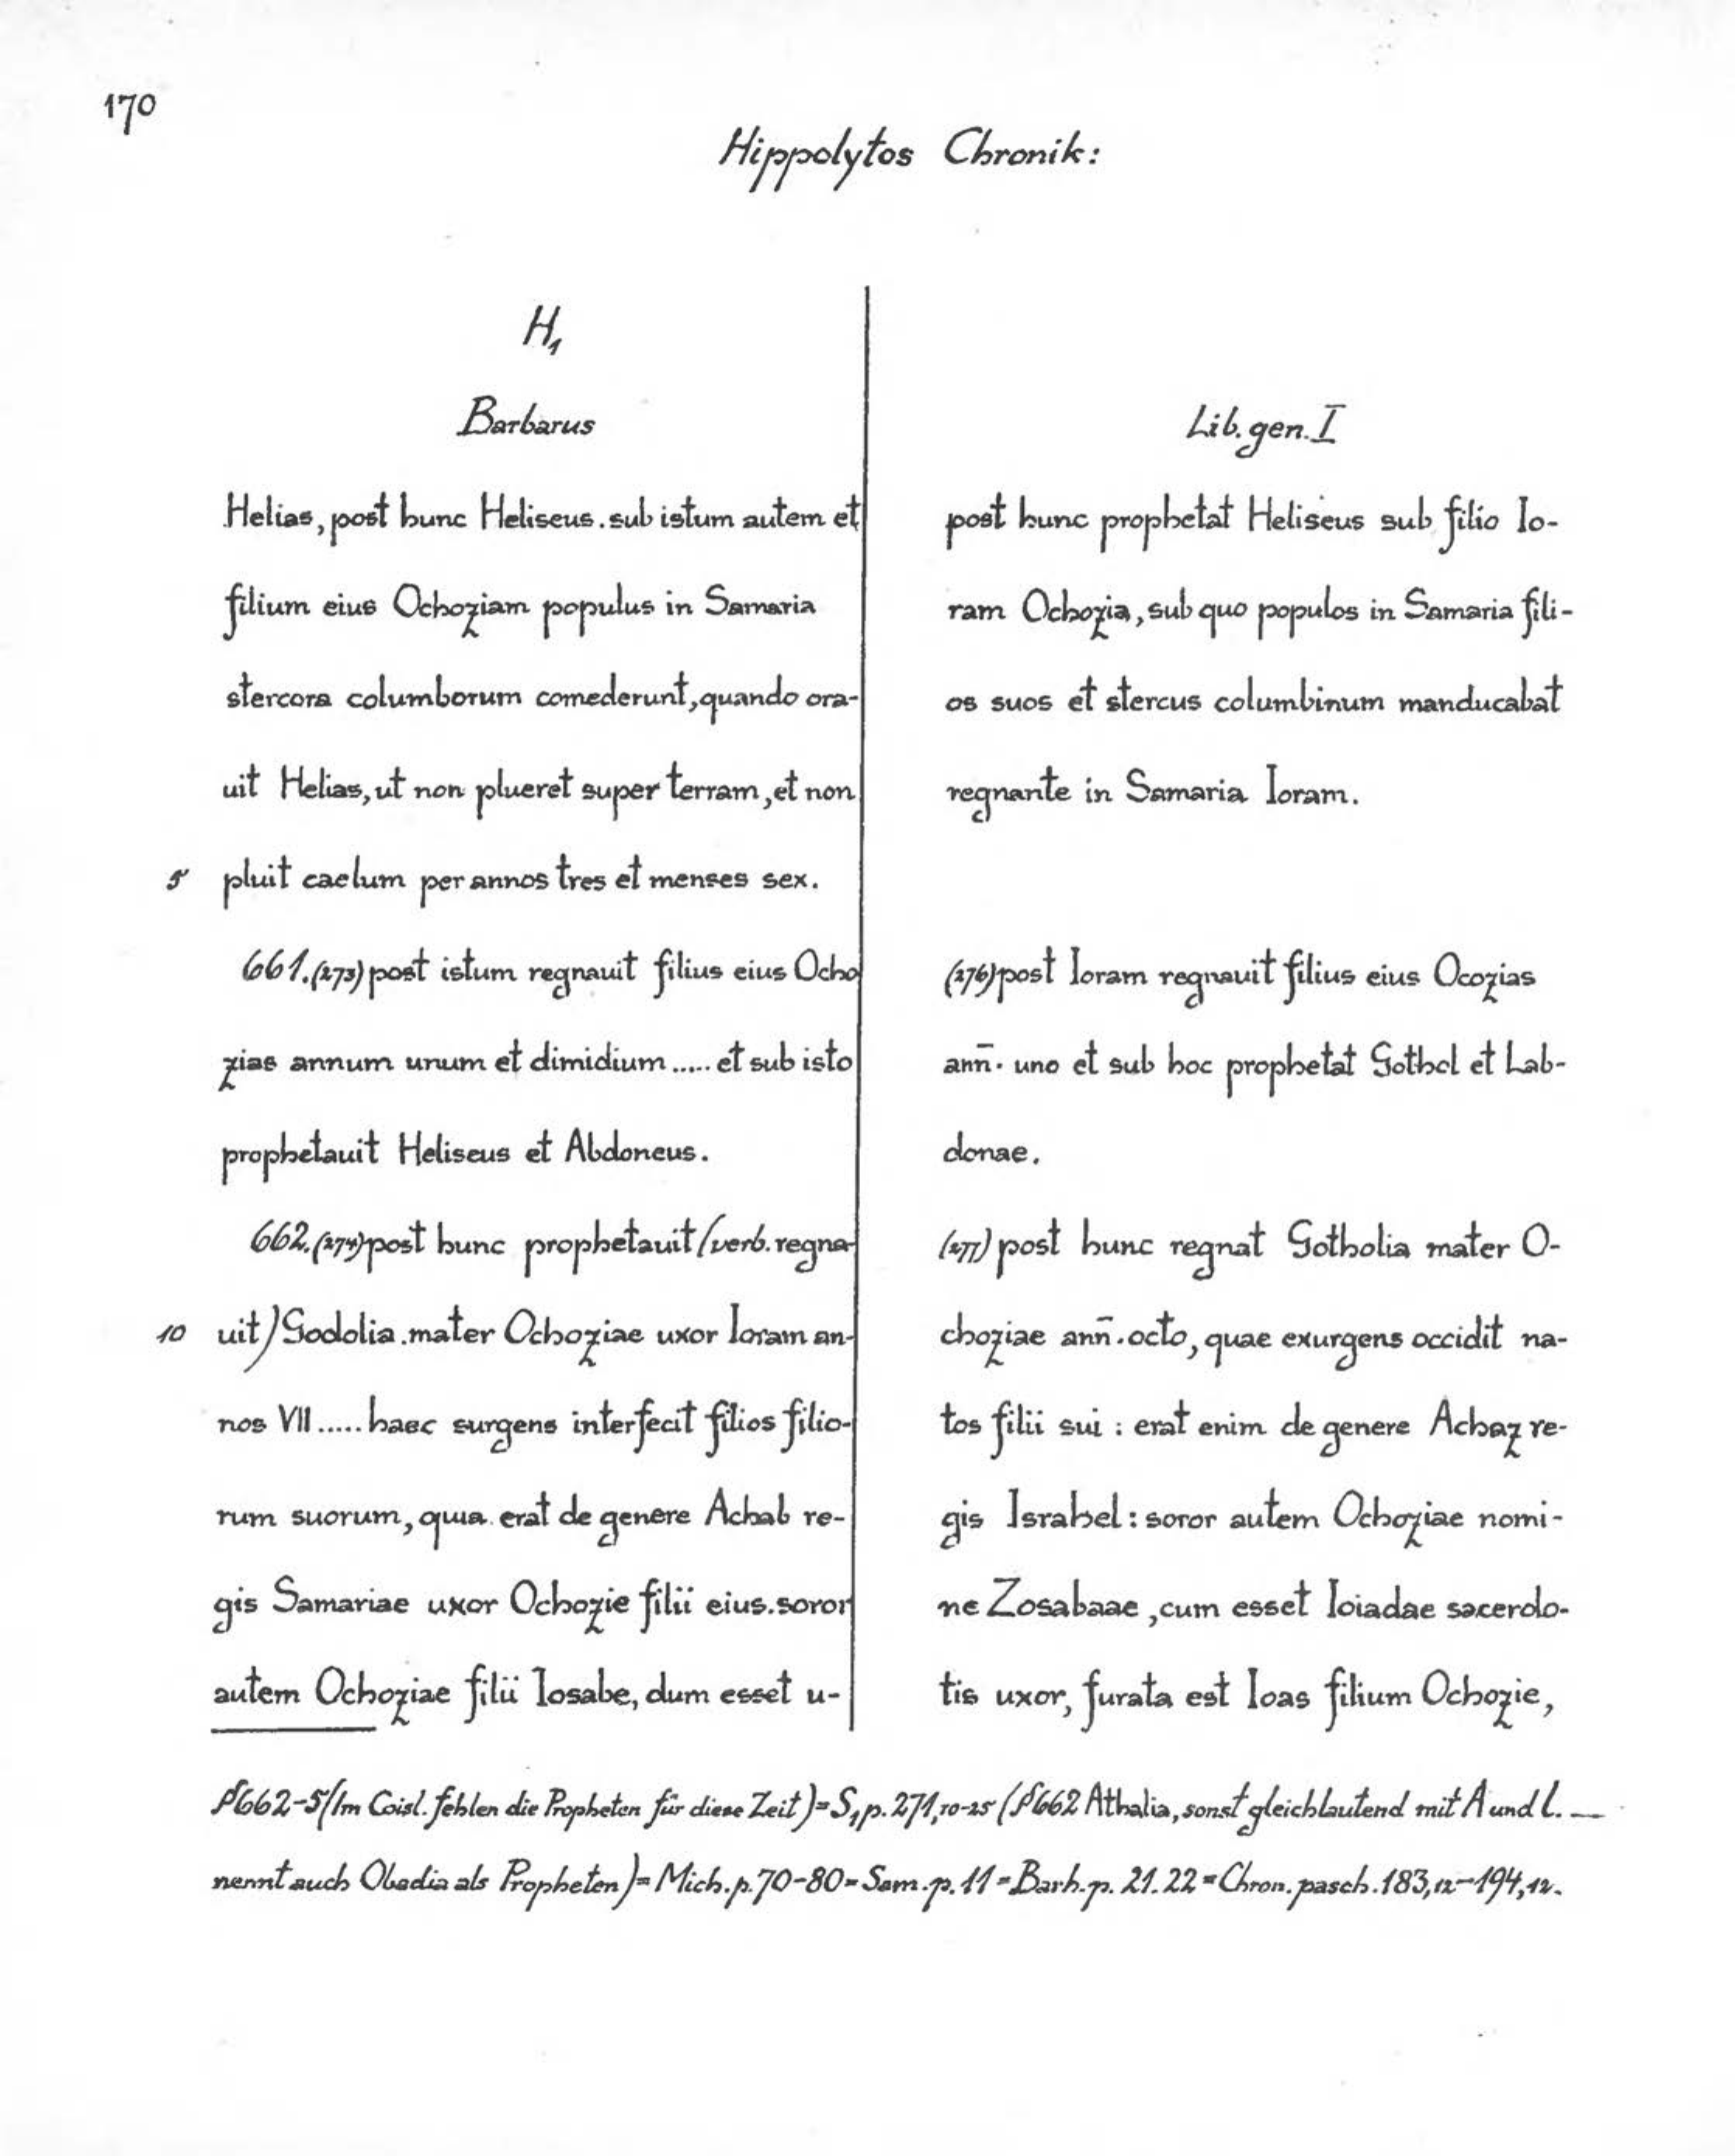 170
Hippolytos Chronik:
H₁
Barbarus
Helias, post hunc Heliseus. sub istum autem et
filium eius Ochoziam populus in Samaria
stercora columborum comederunt, quando ora-
uit Helias, ut non plueret super terram, et non
5 pluit caelum per annos tres et menses sex.
661. (273) post istum regnauit filius eius Ocho
zias annum unum et dimidium ..... et sub isto
prophetauit Heliseus et Abdoneus.
662. (274) post hunc prophetauit (verb. regna-
10 uit) Godolia. mater Ochoziae uxor Ioram an-
nos VII ..... haec surgens interfecit filios filio-
rum suorum, quia erat de genere Achab re-
gis Samariae uxor Ochozie filii eius. soror
autem Ochoziae filii Iosabe, dum esset u-
Lib. gen. I
post hunc prophetat Heliseus sub filio Io-
ram Ochozia, sub quo populos in Samaria fili-
os suos et stercus columbinum manducabat
regnante in Samaria Ioram.
(276) post Ioram regnauit filius eius Ocozias
ann̄. uno et sub hoc prophetat Gothol et Lab-
donae.
(277) post hunc regnat Gotholia mater O-
choziae ann̄. octo, quae exurgens occidit na-
tos filii sui : erat enim de genere Achaz re-
gis Israhel : soror autem Ochoziae nomi-
ne Zosabaae, cum esset Ioiadae sacerdo-
tis uxor, furata est Ioas filium Ochozie,
§ 662-5 (Im Coisl. fehlen die Propheten für diese Zeit) = S₁ p. 271,10-25 (§ 662 Athalia, sonst gleichlautend mit A und l. —
nennt auch Obadia als Propheten) = Mich. p. 70-80 = Sam. p. 11 = Barh. p. 21. 22 = Chron. pasch. 183,12-194,12.